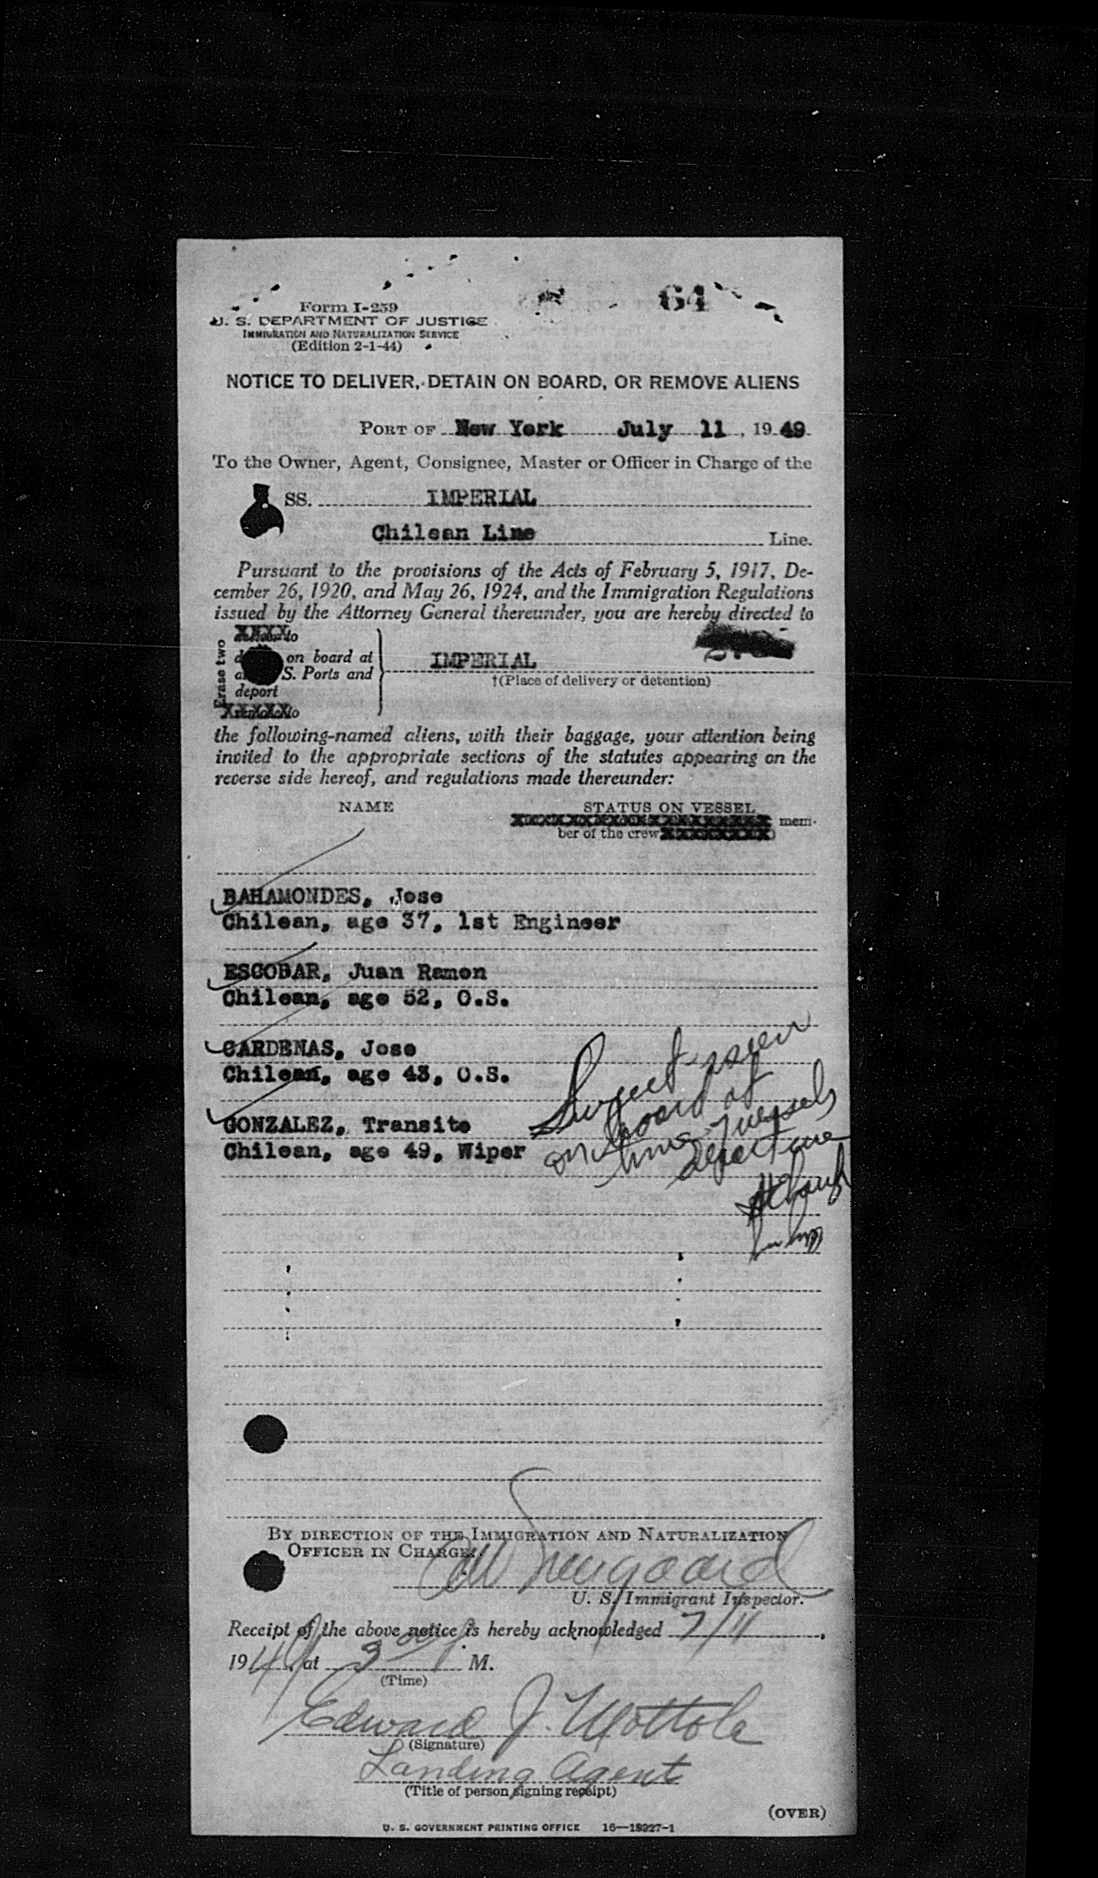 64
Form I-259
U. S. DEPARTMENT OF JUSTICE
IMMIGRATION AND NATURALIZATION SERVICE
(Edition 2-1-44)
NOTICE TO DELIVER, DETAIN ON BOARD, OR REMOVE ALIENS
PORT OF New York July 11, 1949
To the Owner, Agent, Consignee, Master or Officer in Charge of the
SS. IMPERIAL
Chilean Line Line.
Pursuant to the provisions of the Acts of February 5, 1917, De-
cember 26, 1920, and May 26, 1924, and the Immigration Regulations
issued by the Attorney General thereunder, you are hereby directed to
Erase two
XXXX to
on board at
S. Ports and
deport
XXXXX to
IMPERIAL
†(Place of delivery or detention)
the following-named aliens, with their baggage, your attention being
invited to the appropriate sections of the statutes appearing on the
reverse side hereof, and regulations made thereunder:
NAME STATUS ON VESSEL
mem-
ber of the crew
BAHAMONDES, Jose
Chilean, age 37, 1st Engineer
ESCOBAR, Juan Ramon
Chilean, age 52, O.S.
CARDENAS, Jose
Chilean, age 43, O.S.
GONZALEZ, Transito
Chilean, age 49, Wiper
on board at
time vessels
departure
BY DIRECTION OF THE IMMIGRATION AND NATURALIZATION
OFFICER IN CHARGE:
U. S. Immigrant Inspector.
Receipt of the above notice is hereby acknowledged 7/11,
1949 at 3 M.
(Time)
Edward J. Mottola
(Signature)
Landing Agent
(Title of person signing receipt)
(OVER)
U. S. GOVERNMENT PRINTING OFFICE 16—18927-1